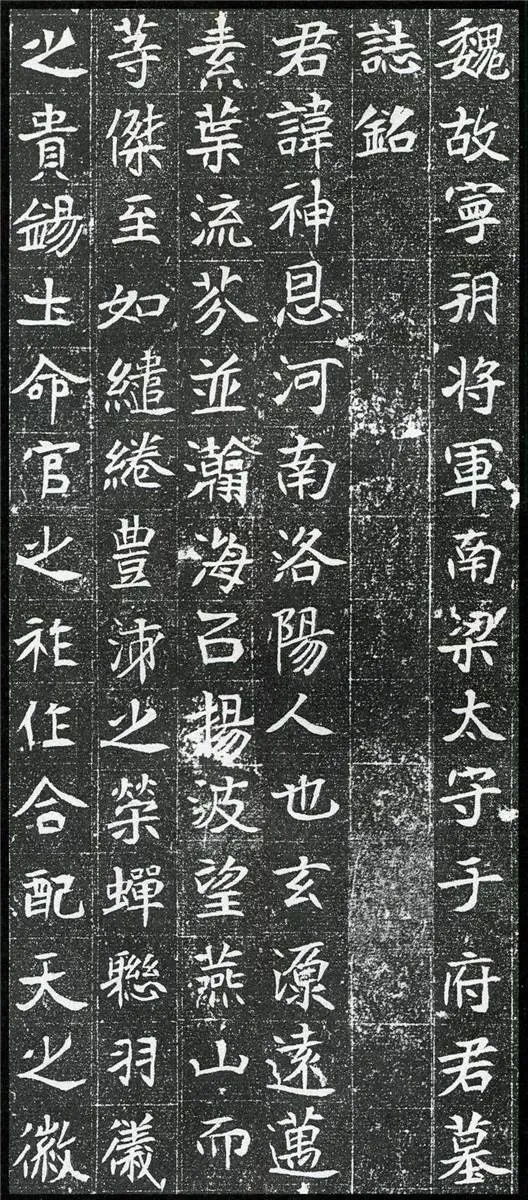 魏故寧朔将軍南梁太守于府君墓
誌銘
君諱神恩河南洛陽人也玄源遠邁
素葉流芬並瀚海㠯揚波望燕山而
等傑至如繾綣豊沛之榮蟬聮羽儀
之貴錫土命官之祚作合配天之徽